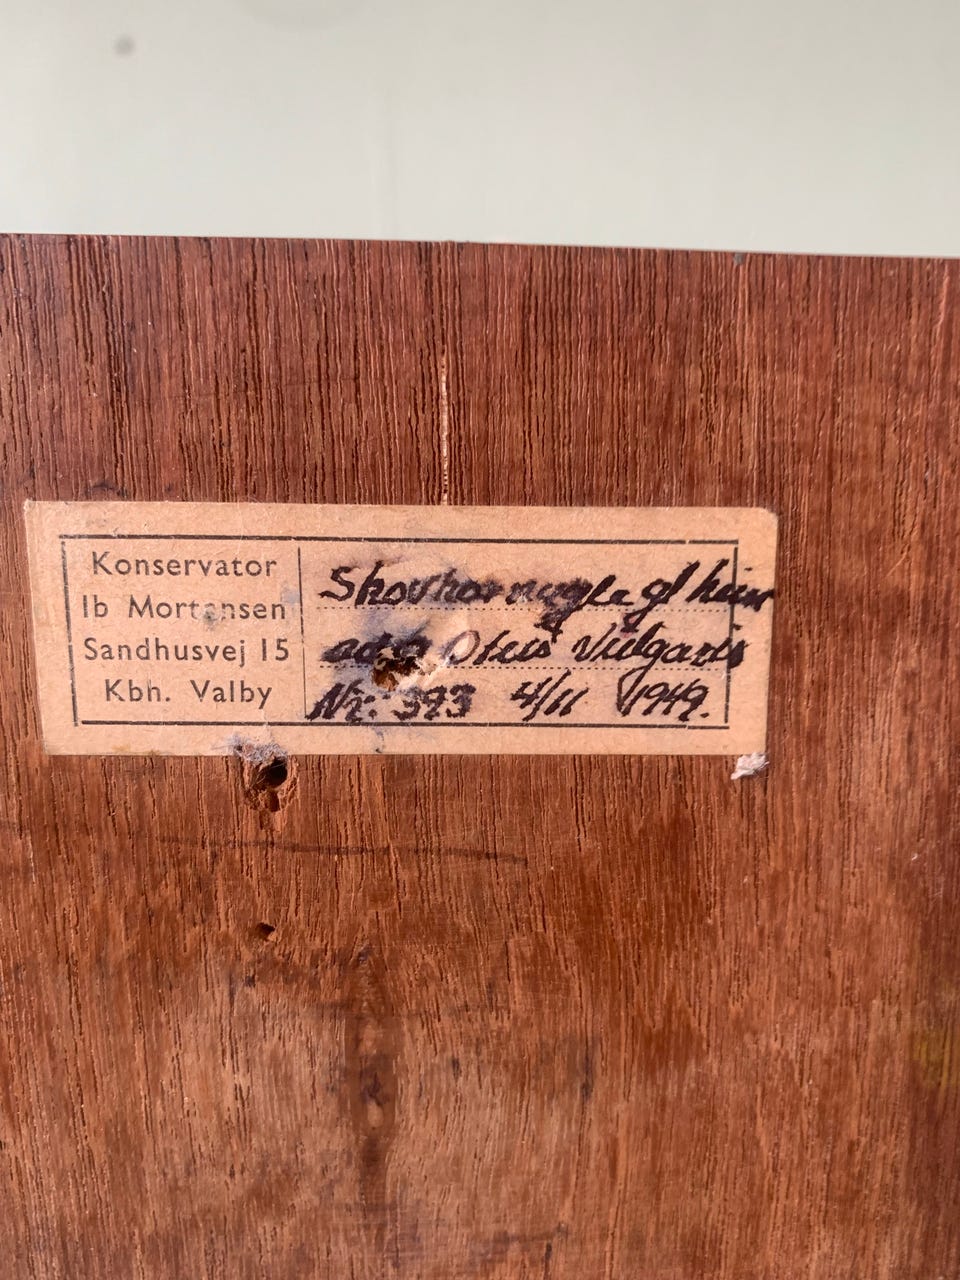 Konservator
Ib Mortensen
Sandhusvej 15
Kbh. Valby
Skovhornugle gl
Otus Vulgaris
Nr: 393 4/11 1949.